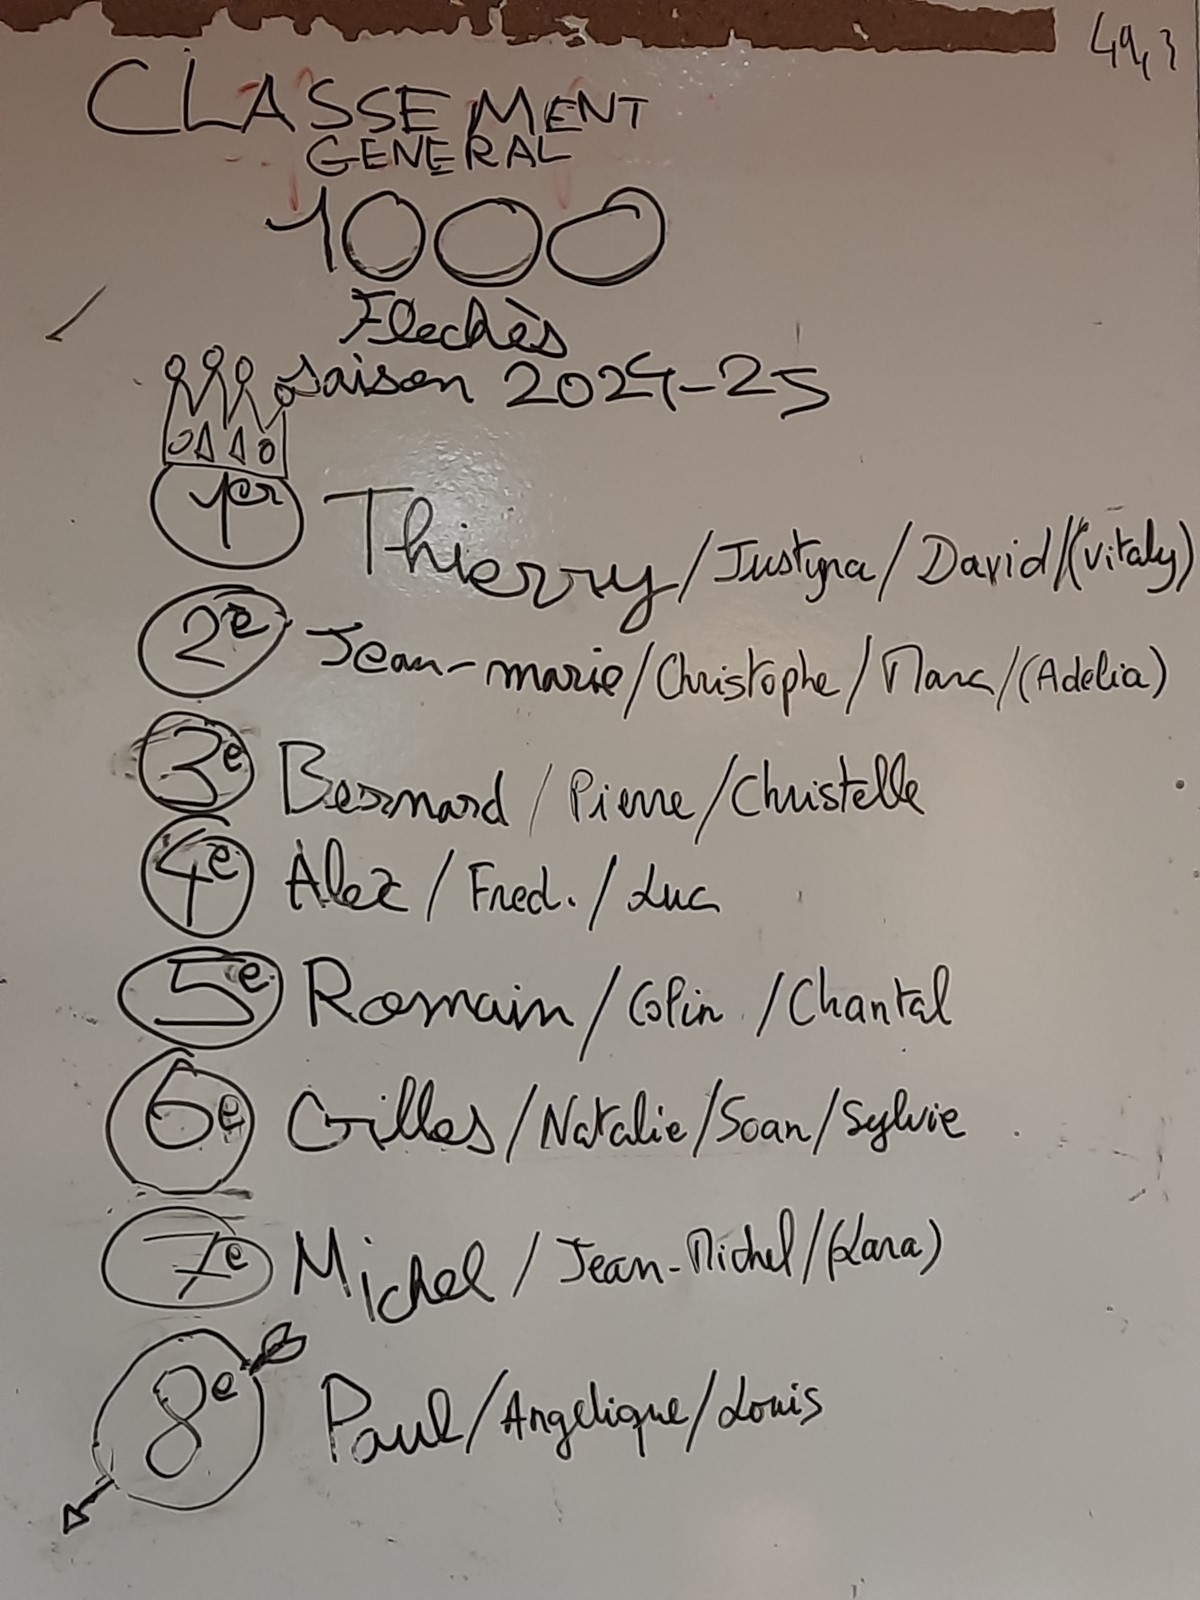 49,3
CLASSEMENT
GENERAL
1000
Flechès
saison 2024-25
1er Thierry/Justyna/David/(Vitaly)
2e Jean-marie/Christophe/Marc/(Adelia)
3e Bernard/Pierre/Christelle
4e Alex/Fred./Luc
5e Romain/Colin/Chantal
6e Gilles/Natalie/Soan/Sylvie
7e Michel/Jean-Michel/(Lara)
8e Paul/Angelique/Louis